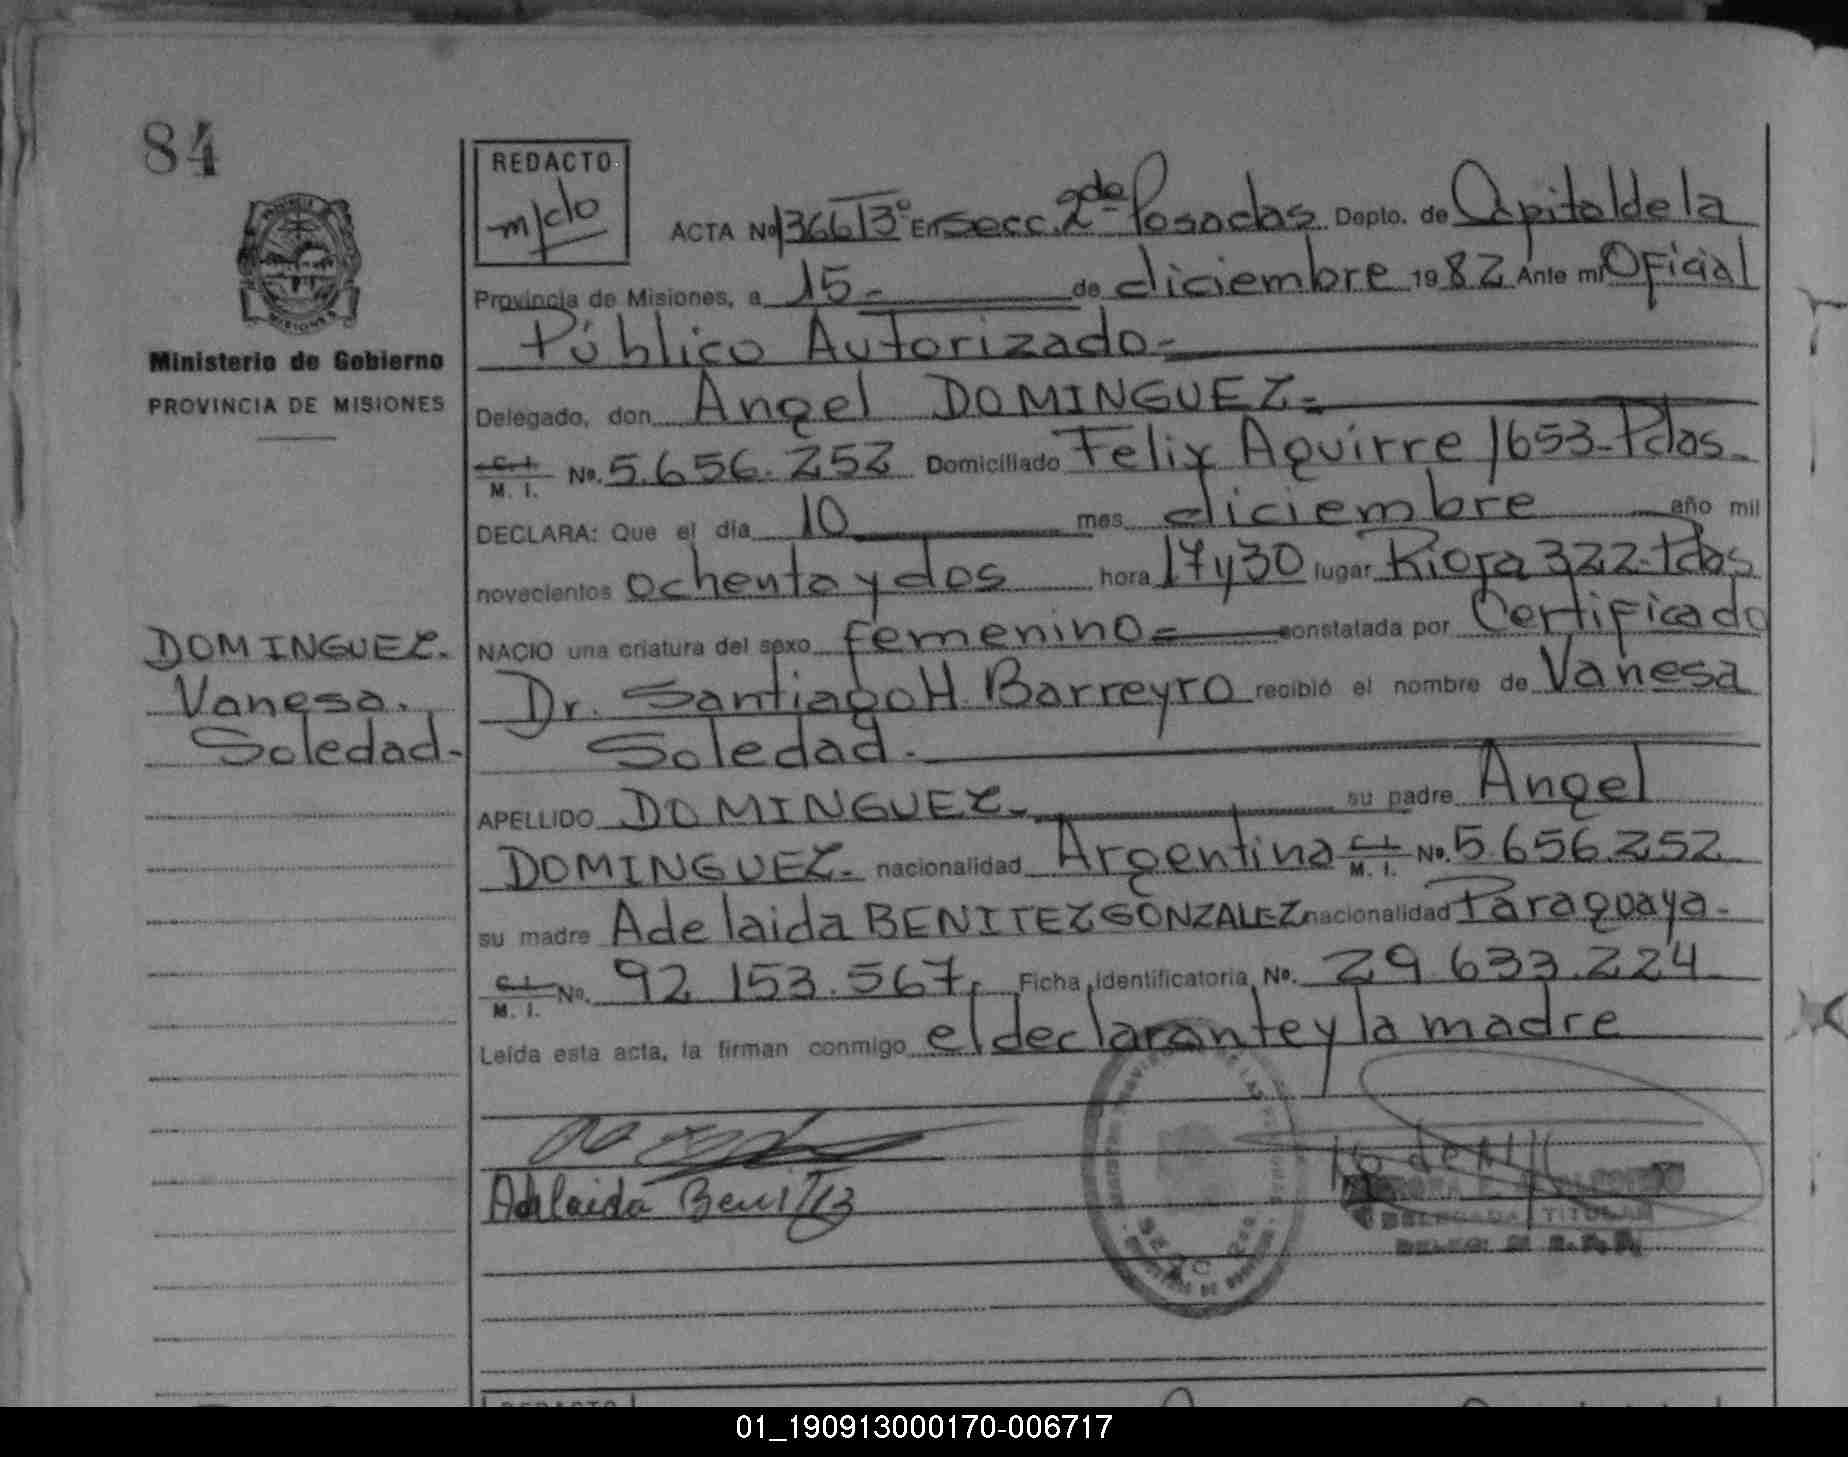 84
REDACTO
m/clo
ACTA Nº 1366 T3º En secc. 2da Posadas Depto. de Capital de la
Provincia de Misiones, a 15- de diciembre 1982 Ante mi Oficial
Público Autorizado.-
Ministerio de Gobierno
PROVINCIA DE MISIONES
Delegado, don Angel DOMINGUEZ.-
C.I. M. I. Nº. 5.656.252 Domiciliado Felix Aguirre 1653-Pdas.-
DECLARA: Que el día 10 mes diciembre año mil
novecientos ochenta y dos hora 17 y 30 lugar Rioja 322-Pdas
NACIO una criatura del sexo femenino.- constatada por Certificado
Dr. Santiago H. Barreyro recibió el nombre de Vanesa
Soledad.-
DOMINGUEZ.
Vanesa.
Soledad-
APELLIDO DOMINGUEZ.- su padre Angel
DOMINGUEZ.- nacionalidad Argentina C.I. M. I. Nº. 5.656.252
su madre Adelaida BENITEZ GONZALEZ nacionalidad Paraguaya-
C.I. M. I. Nº. 92.153.567.- Ficha identificatoria Nº. 29.633.224
Leída esta acta, la firman conmigo el declarante y la madre
Adelaida Benitez
DELEGADA TITULAR
SECC 2da
REDACTO
01_190913000170-006717